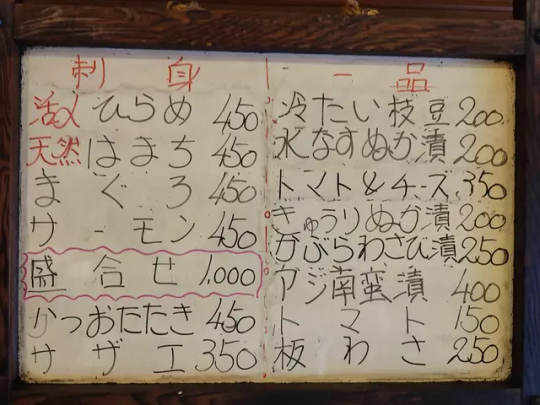 刺身
活〆ひらめ 450
天然はまち 450
まぐろ 450
サーモン 450
盛合せ 1,000
かつおたたき 450
サザエ 350
一品
冷たい枝豆 200
水なすぬか漬 200
トマト&チーズ 350
きゅうりぬか漬 200
かぶらわさび漬 250
アジ南蛮漬 400
トマト 150
板わさ 250